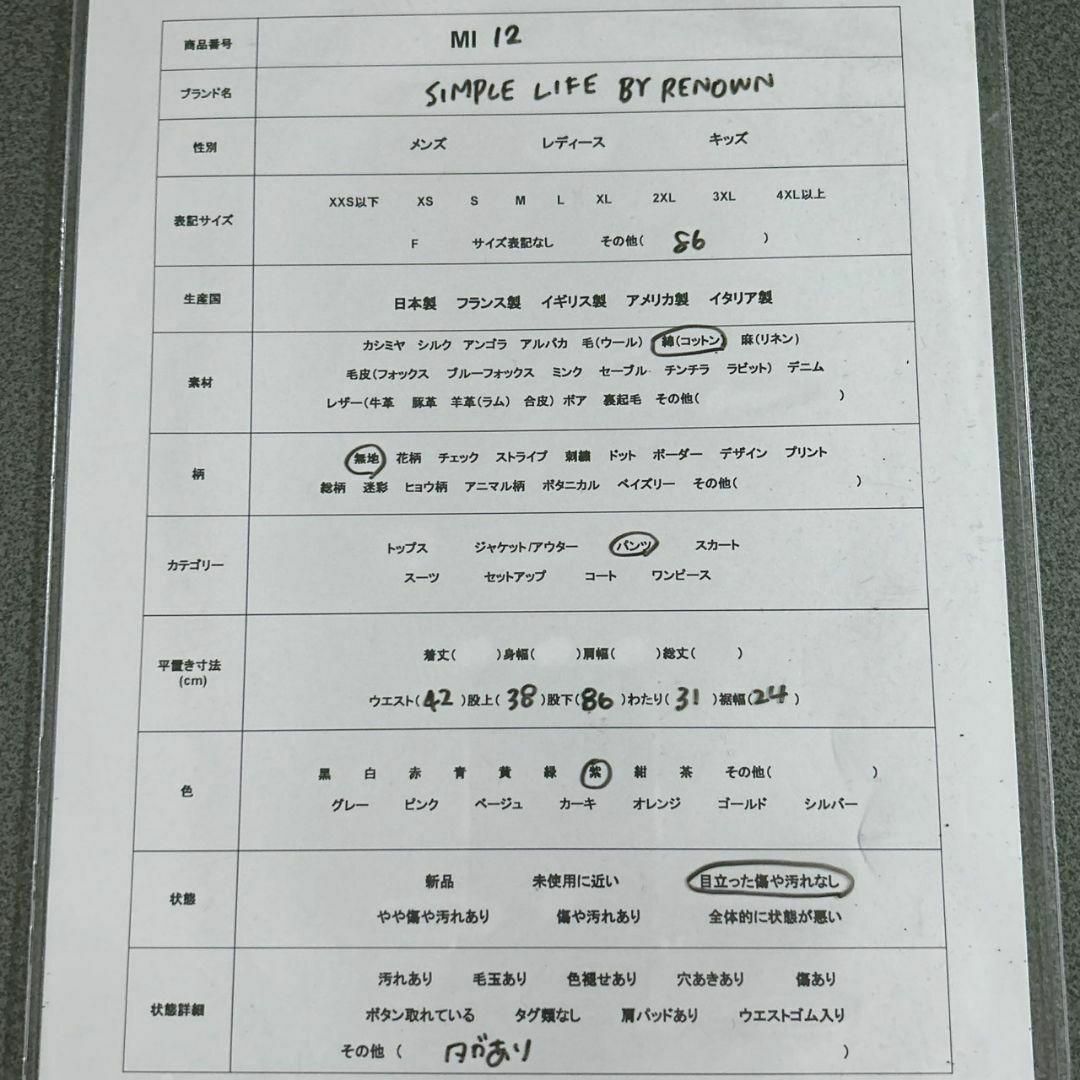 商品番号 MI 12
ブランド名 SIMPLE LIFE BY RENOWN
性別 メンズ レディース キッズ
表記サイズ
XXS以下 XS S M L XL 2XL 3XL 4XL以上
F サイズ表記なし その他( 86 )
生産国 日本製 フランス製 イギリス製 アメリカ製 イタリア製
素材
カシミヤ シルク アンゴラ アルパカ 毛(ウール) 綿(コットン) 麻(リネン)
毛皮(フォックス ブルーフォックス ミンク セーブル チンチラ ラビット) デニム
レザー(牛革 豚革 羊革(ラム) 合皮) ボア 裏起毛 その他( )
柄
無地 花柄 チェック ストライプ 刺繍 ドット ボーダー デザイン プリント
総柄 迷彩 ヒョウ柄 アニマル柄 ボタニカル ペイズリー その他( )
カテゴリー
トップス ジャケット/アウター パンツ スカート
スーツ セットアップ コート ワンピース
平置き寸法
(cm)
着丈( )身幅( )肩幅( )総丈( )
ウエスト(42)股上(38)股下(86)わたり(31)裾幅(24)
色
黒 白 赤 青 黄 緑 紫 紺 茶 その他( )
グレー ピンク ベージュ カーキ オレンジ ゴールド シルバー
状態
新品 未使用に近い 目立った傷や汚れなし
やや傷や汚れあり 傷や汚れあり 全体的に状態が悪い
状態詳細
汚れあり 毛玉あり 色褪せあり 穴あきあり 傷あり
ボタン取れている タグ類なし 肩パッドあり ウエストゴム入り
その他 ( タグあり )